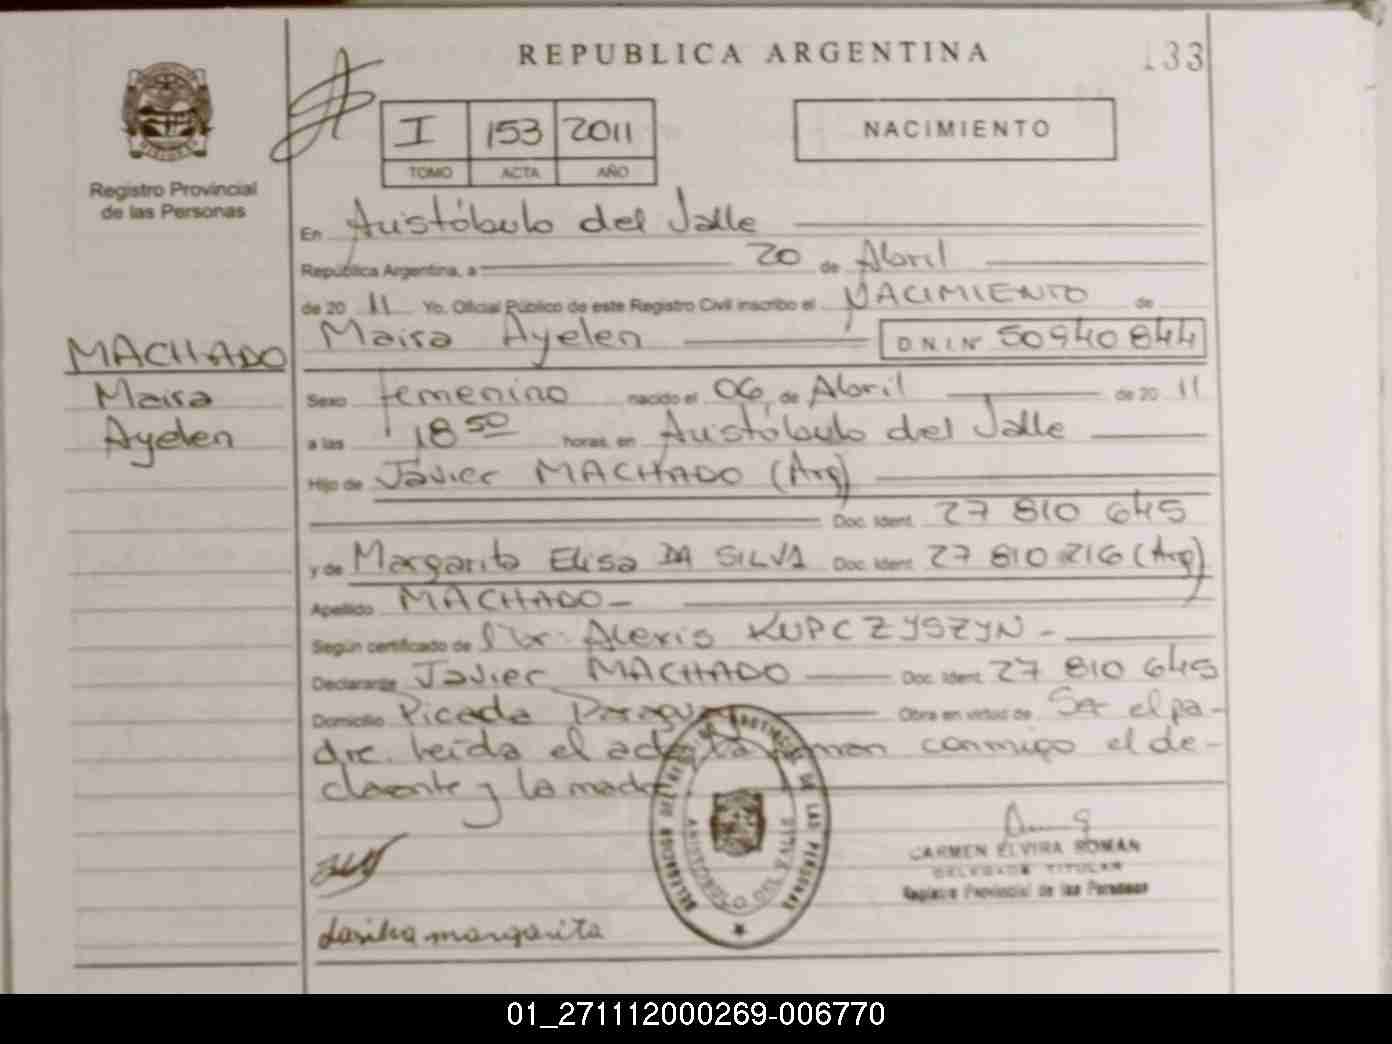 REPUBLICA ARGENTINA
133
Registro Provincial
de las Personas
I 153 2011
TOMO ACTA AÑO
NACIMIENTO
En Aristóbulo del Valle
República Argentina, a 20 de Abril
de 20 11 Yo. Oficial Público de este Registro Civil inscribo el NACIMIENTO de
Maisa Ayelen D.N.I.Nº 50940844
MACHADO
Maisa
Ayelen
Sexo femenino nacido el 06 de Abril de 20 11
a las 18 50 horas, en Aristóbulo del Valle
Hijo de Javier MACHADO (Arg)
Doc. Ident. 27 810 645
y de Margarita Elisa DA SILVA Doc. Ident. 27 810 216 (Arg)
Apellido MACHADO-
Según certificado de Dr. Alexis KUPCZYSZYN-
Declarante Javier MACHADO Doc. Ident. 27 810 645
Domicilio Picada Paraguay Obra en virtud de Ser el pa-
dre. leída el acta la firman conmigo el de-
clarante y la madre
CARMEN ELVIRA ROMAN
DELEGADA TITULAR
Registro Provincial de las Personas
margarita
01_271112000269-006770